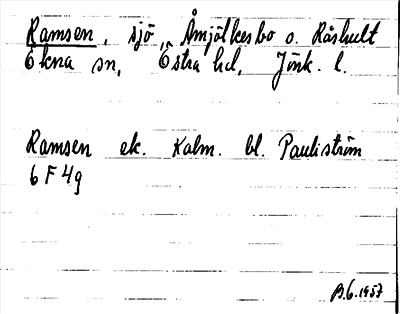 Ramsen, sjö, Åmjölkesbo o. Råshult
Ökna sn, Östra hd, Jönk. l.
Ramsen ek. Kalm. bl. Pauliström
6 F 4g
B.6.1957